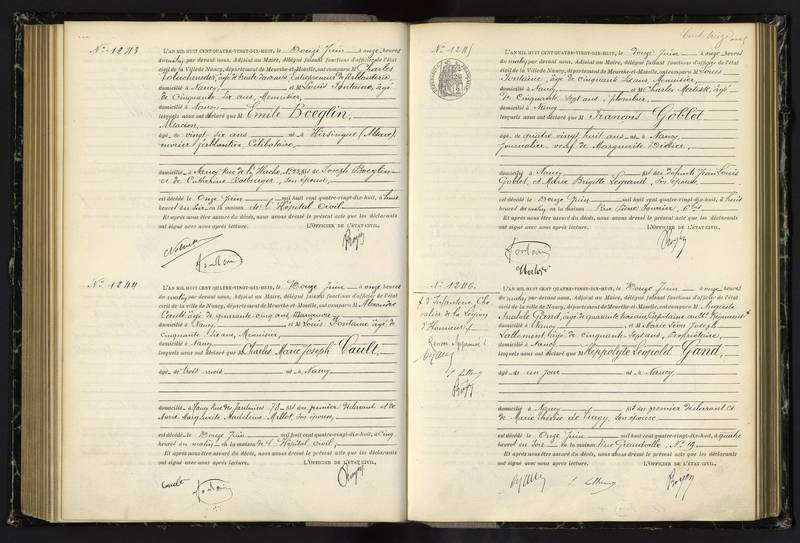 N° 1243
L'AN MIL HUIT CENT QUATRE-VINGT-DIX-HUIT, le Douze Juin à onze heures
du matin, par devant nous, Adjoint au Maire, délégué faisant fonctions d'officier de l'état
civil de la Ville de Nancy, département de Meurthe-et-Moselle, ont comparu M Charles
âgé de trente deux ans, Entrepreneur de ferblanterie,
domicilié à Nancy et M Louis Fontaine, âgé
de Cinquante six ans, Menuisier,
domicilié à Nancy
lesquels nous ont déclaré que M Emile Boeglin,
Alsacien,
âgé de vingt six ans né à Hirsingue (Alsace),
ouvrier ferblantier, Célibataire,
domicilié à Nancy Rue de la Hache, N° fils de Joseph Boeglin
et de Catherine son épouse,
est décédé le Onze Juin mil huit cent quatre-vingt-dix-huit, à
heures du soir en la maison de l'Hôpital Civil
Et après nous être assuré du décès, nous avons dressé le présent acte que les déclarants
ont signé avec nous après lecture. L'OFFICIER DE L'ÉTAT CIVIL,
N° 1244
L'AN MIL HUIT CENT QUATRE-VINGT-DIX-HUIT, le Douze Juin à onze heures
du matin, par devant nous, Adjoint au Maire, délégué faisant fonctions d'officier de l'état
civil de la ville de Nancy, département de Meurthe-et-Moselle, ont comparu M Alexandre
Cault, âgé de quarante cinq ans,
domicilié à Nancy et M Louis Fontaine, âgé de
Cinquante six ans, Menuisier,
domicilié à Nancy
lesquels nous ont déclaré que Charles Marie Joseph Cault,
âgé de trois mois né à Nancy
domicilié à Nancy Rue des Jardiniers 78 fils du premier déclarant et de
Marie Marguerite Madeleine Millot, son épouse,
est décédé le Douze Juin mil huit cent quatre-vingt-dix-huit, à Cinq
heures du matin en la maison de l'Hôpital Civil,
Et après nous être assuré du décès, nous avons dressé le présent acte que les déclarants
ont signé avec nous après lecture. L'OFFICIER DE L'ÉTAT CIVIL,
Cault
N° 1245
L'AN MIL HUIT CENT QUATRE-VINGT-DIX-HUIT, le Douze Juin à onze heures
du matin, par devant nous, Adjoint au Maire, délégué faisant fonctions d'officier de l'état
civil de la Ville de Nancy, département de Meurthe-et-Moselle, ont comparu M Louis
Fontaine, âgé de Cinquante six ans, Menuisier,
domicilié à Nancy et M Charles âgé
de Cinquante Sept ans, plombier,
domicilié à Nancy
lesquels nous ont déclaré que M François Goblet,
âgé de quatre vingt huit ans né à Nancy
Journalier, veuf de Marguerite Didier,
domicilié à Nancy fils des défunts Jean Louis
Goblet, et Marie Brigitte Legrand, son épouse
est décédé le Douze Juin mil huit cent quatre-vingt-dix-huit, à
heures du matin, en la maison Rue Pierre Fourier, 6 bis
Et après nous être assuré du décès, nous avons dressé le présent acte que les déclarants
ont signé avec nous après lecture. L'OFFICIER DE L'ÉTAT CIVIL,
N° 1246.
+ d'Infanterie, Chevalier de la Légion
d'Honneur
Renvoi approuvé
L'AN MIL HUIT CENT QUATRE-VINGT-DIX-HUIT, le Douze Juin à onze heures
du matin, par devant nous, Adjoint au Maire, délégué faisant fonctions d'officier de l'état
civil de la ville de Nancy, département de Meurthe-et-Moselle, ont comparu M Auguste
Anatole Gand, âgé de quarante ans, Capitaine au Régiment +
domicilié à Nancy et M Marie Léon Joseph
Lallement, âgé de cinquante sept ans, Propriétaire,
domicilié à Nancy
lesquels nous ont déclaré que M Hippolyte Léopold Gand,
âgé de un jour né à Nancy,
domicilié à Nancy fils du premier déclarant et
de Marie Thérèse de son épouse
est décédé le Onze Juin mil huit cent quatre-vingt-dix-huit, à quatre
heures du soir en la maison Rue Grandville, N° 19
Et après nous être assuré du décès, nous avons dressé le présent acte que les déclarants
ont signé avec nous après lecture. L'OFFICIER DE L'ÉTAT CIVIL,